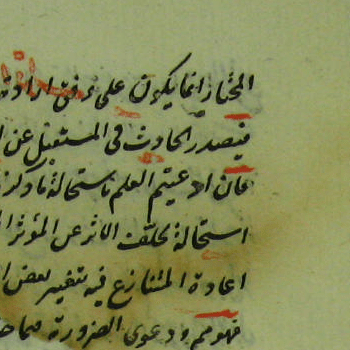 المختار انما يكون على وفق اراد
فيصدر الحادث فى المستقبل عن
فان ادعيتم العلم باستحالة ما ذكر
استحالة تخلف الاثر عن المؤثر ا
اعادة المتنازع فيه بتغيير بعض ا
فهو مم ودعوى الضرورة